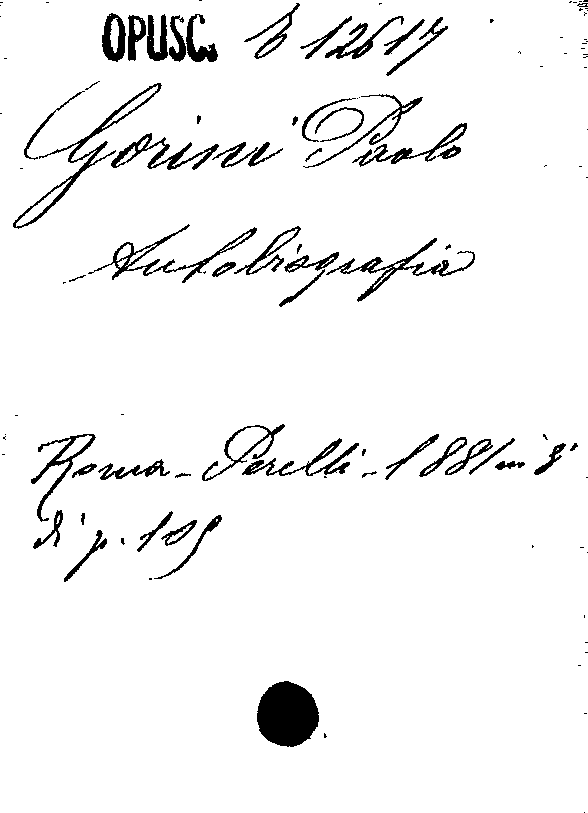 OPUSC. E 12617
Gorini Paolo
Autobiografia
Roma - Perelli - 1881 in 8°
di p. 109